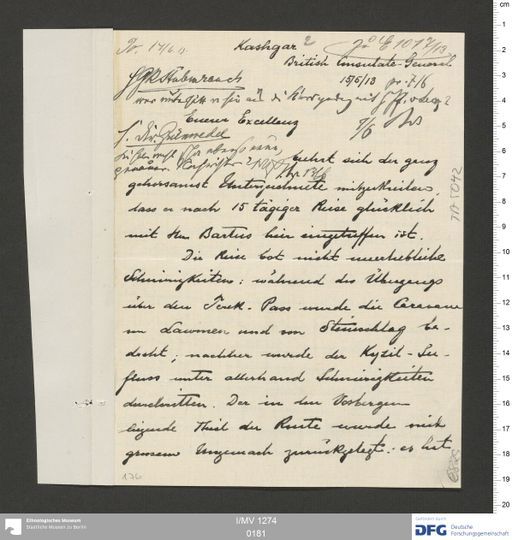 Pr. 14/6.13.
Kashgar
E 1017/13
British Consulate-General
15/5/13 pr. 7/6
Euerer Excellenz
7/6
S. Dir. Grünwedel
beehrt sich der ganz
gehorsamst Unterzeichnete mitzuteilen,
dass er nach 15 tägiger Reise glücklich
mit Herrn Bartus hier eingetroffen ist.
Die Reise bot nicht unerhebliche
Schwierigkeiten: während des Übergangs
über den Terek-Pass wurde die Caravane
von Lawinen und von Steinschlag be-
droht; nachher wurde der Kyzil-Su-
fluss unter allerhand Schwierigkeiten
durchritten. Der in den Vorbergen
liegende Theil der Route wurde mit
grossem Ungemach zurückgelegt: es hat
176
TA 5042
Ethnologisches Museum
Staatliche Museen zu Berlin
I/MV 1274
0181
Gefördert durch
DFG Deutsche
Forschungsgemeinschaft
cm
1
2
3
4
5
6
7
8
9
10
11
12
13
14
15
16
17
18
19
20